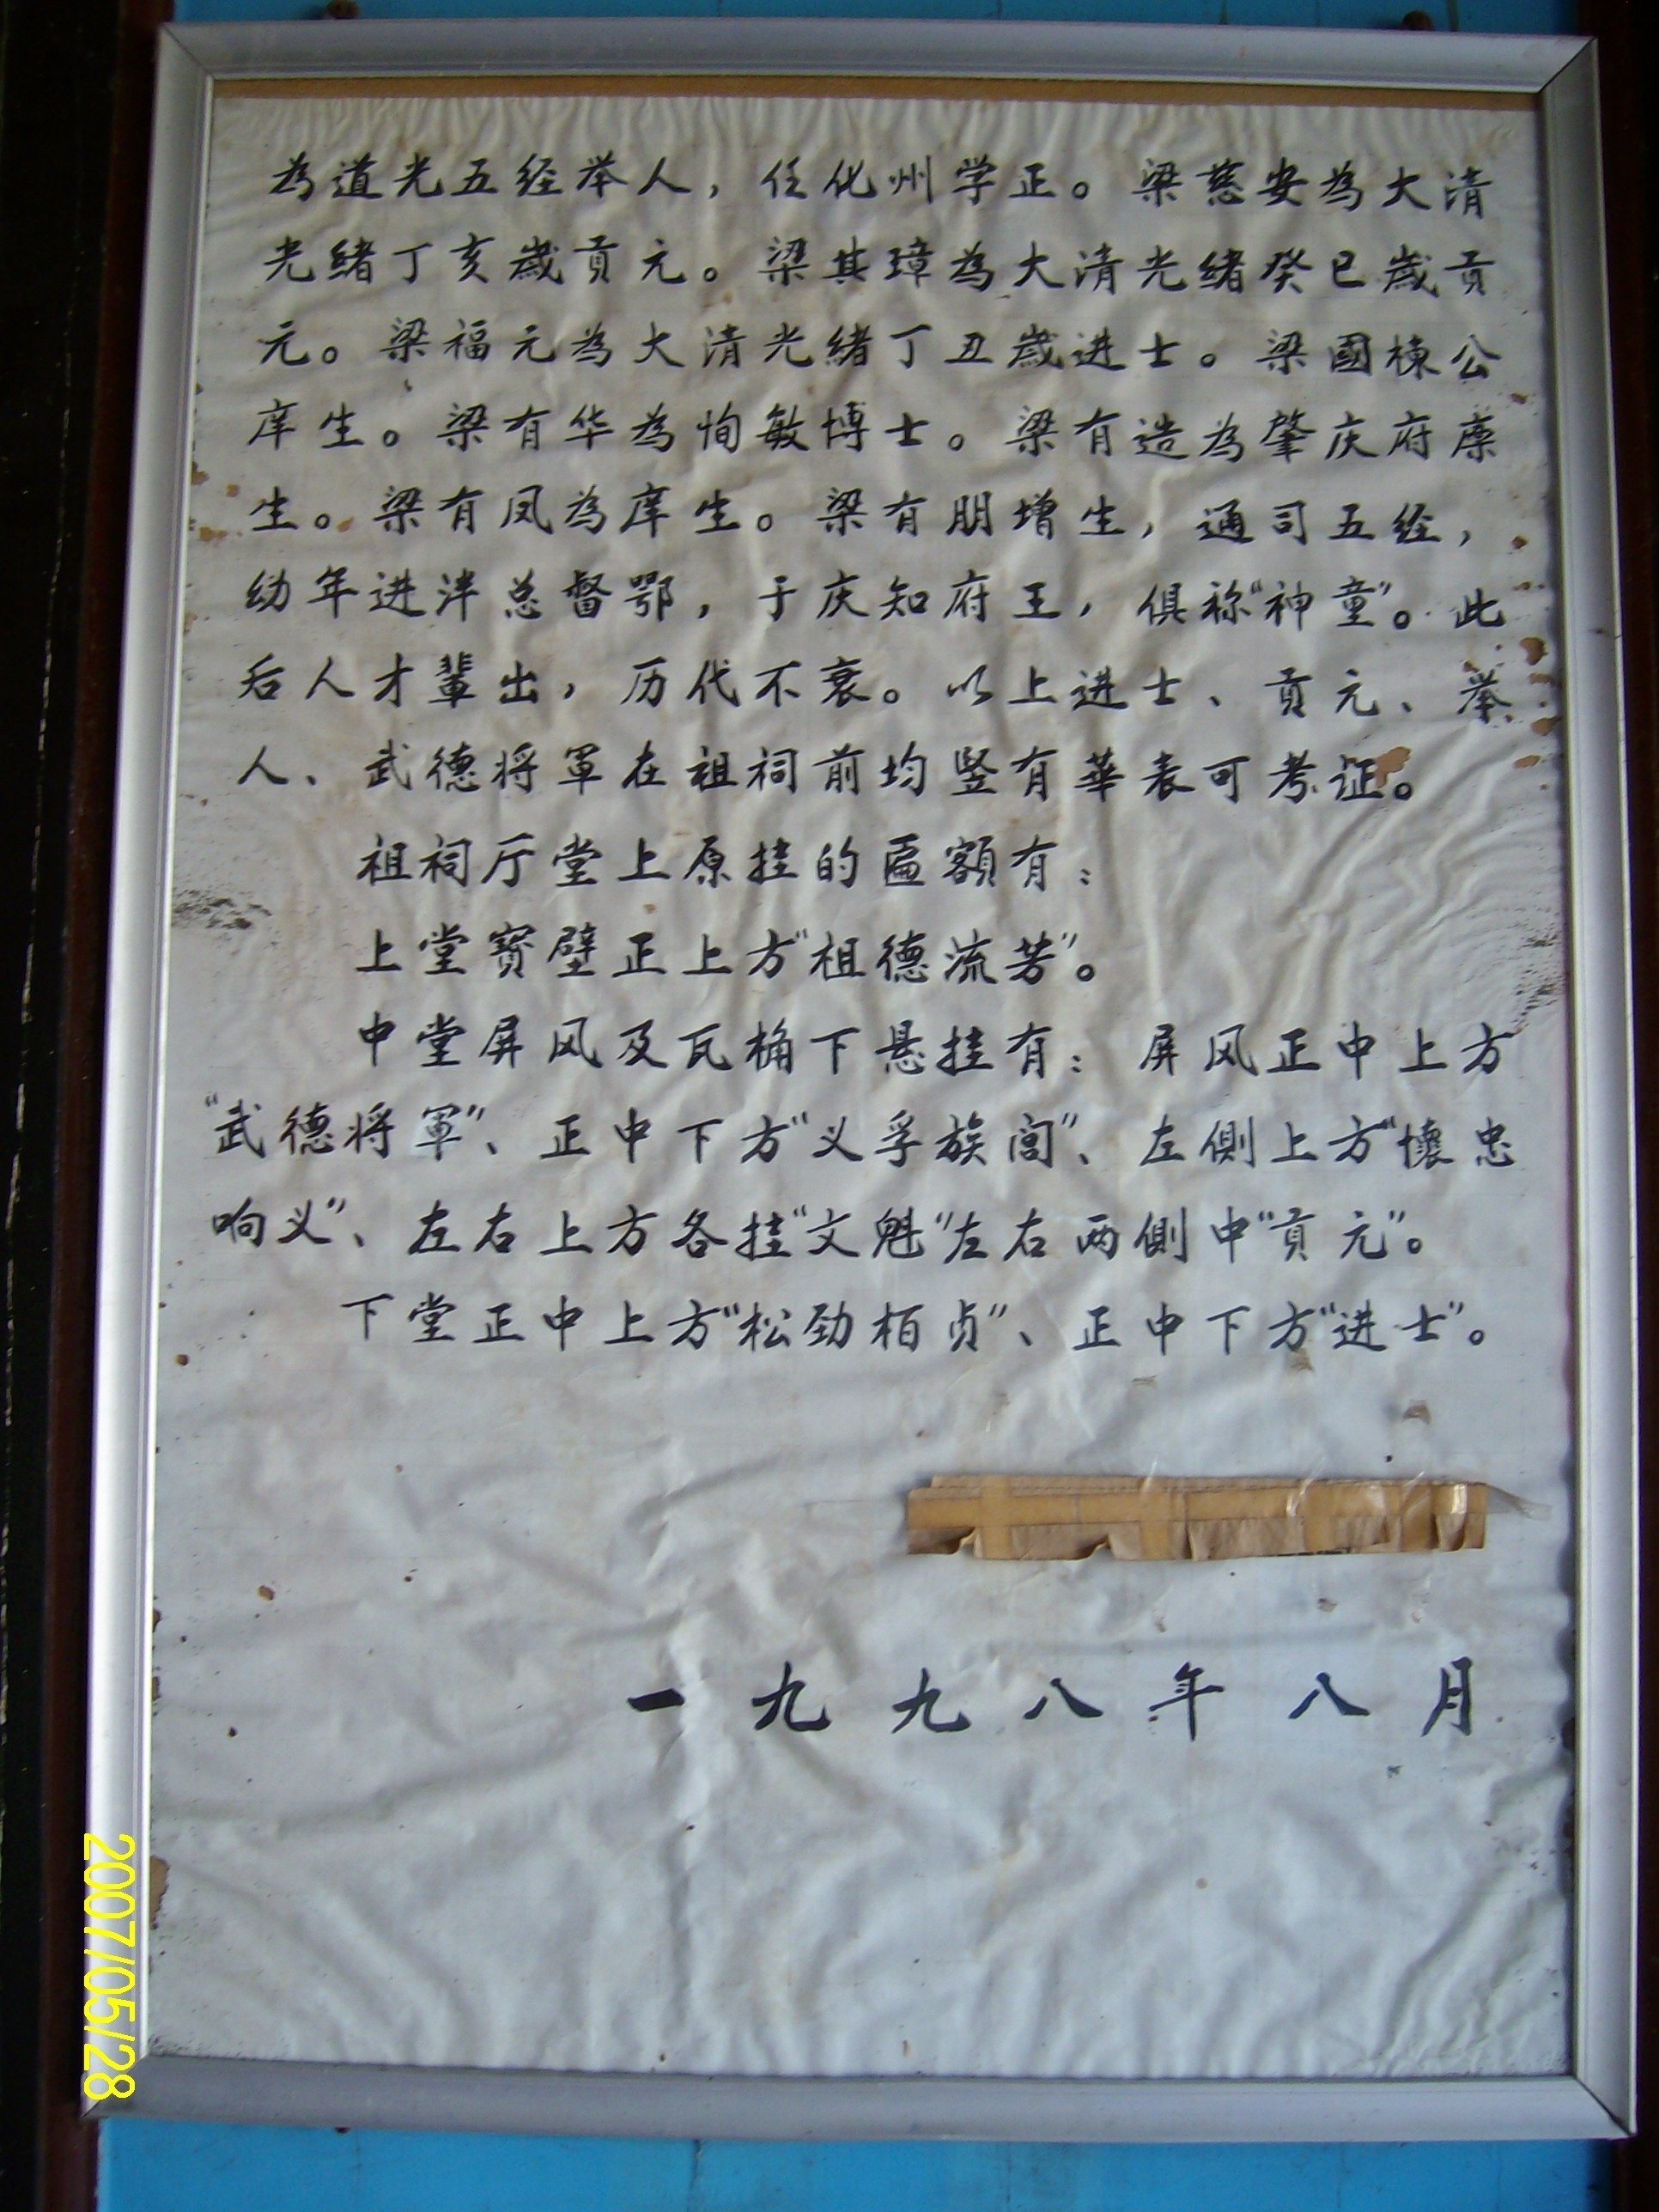 為道光五经举人，任化州学正。梁慈安為大清
光緒丁亥歲貢元。梁其璋為大清光緒癸巳歲贡
元。梁福元為大清光緒丁丑歲进士。梁國棟公
庠生。梁有华為恂敏博士。梁有造為肇庆府廪
生。梁有凤為庠生。梁有朋增生，通司五经，
幼年进泮总督鄂，于庆知府王，俱称“神童”。此
后人才輩出，历代不衰。以上进士、貢元、举
人、武德将軍在祖祠前均竖有華表可考证。
祖祠厅堂上原挂的匾額有：
上堂寳壁正上方“祖德流芳”。
中堂屏风及瓦桷下悬挂有：屏风正中上方
“武德将軍”、正中下方“义孚族闾”、左側上方“懷忠
响义”、左右上方各挂“文魁”左右两側中“貢元”。
下堂正中上方“松劲栢贞”、正中下方“进士”。
一九九八年八月
2007/05/28